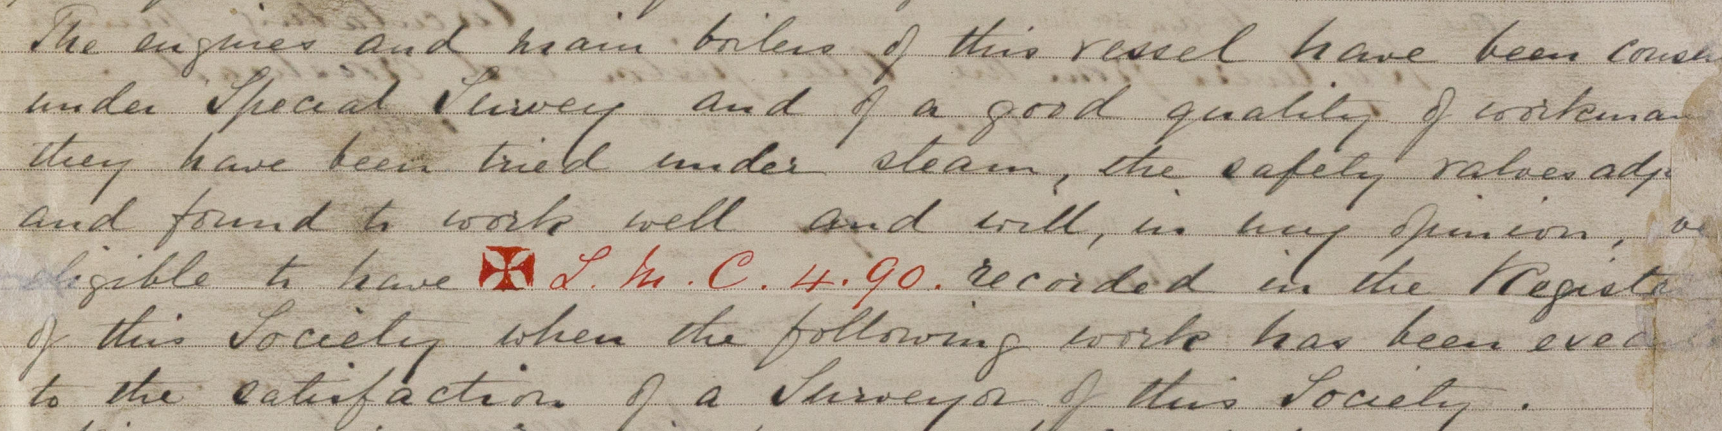 The engines and main boilers of this vessel have been conse
under Special Survey and of a good quality of workman
they have been tried under steam, the safety valves adj
and found to work well and will, in my opinion,
eligible to have ✠ L.M.C. 4.90. recorded in the Registe
of this Society when the following work has been exec
to the satisfaction of a Surveyor of this Society.